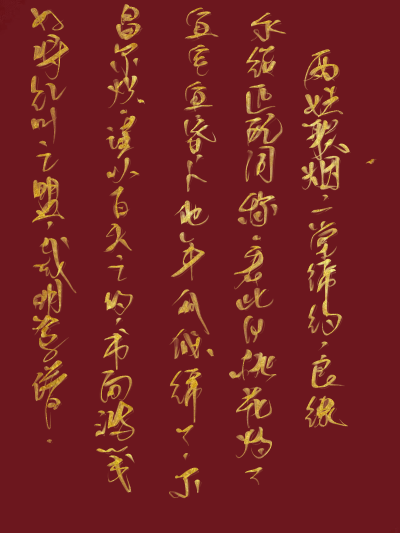 两姓联姻，一堂缔约，良缘
永结，匹配同称。看此日桃花灼々
宜室宜家，卜他年瓜瓞绵々，尔
昌尔炽，谨以白头之约，书向鸿笺
好将红叶之盟，载明鸳谱。